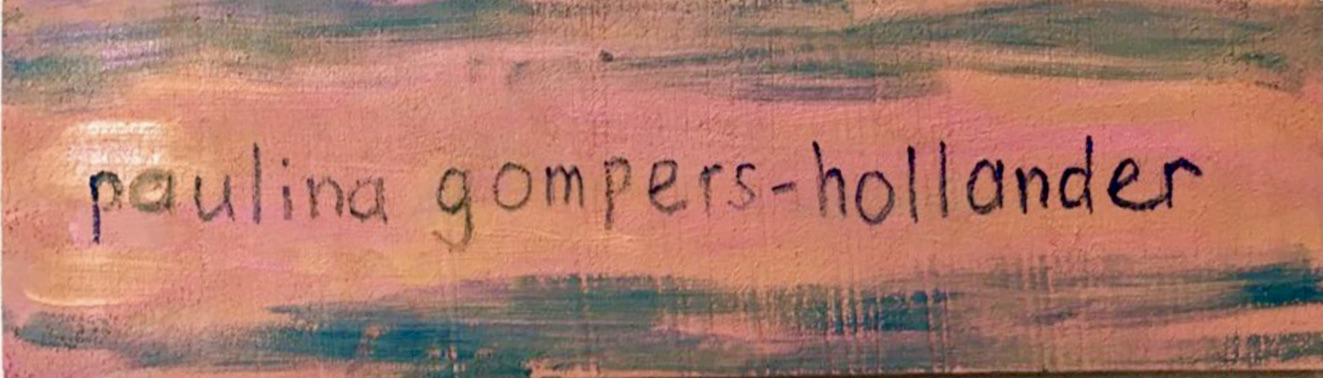 paulina gompers-hollander